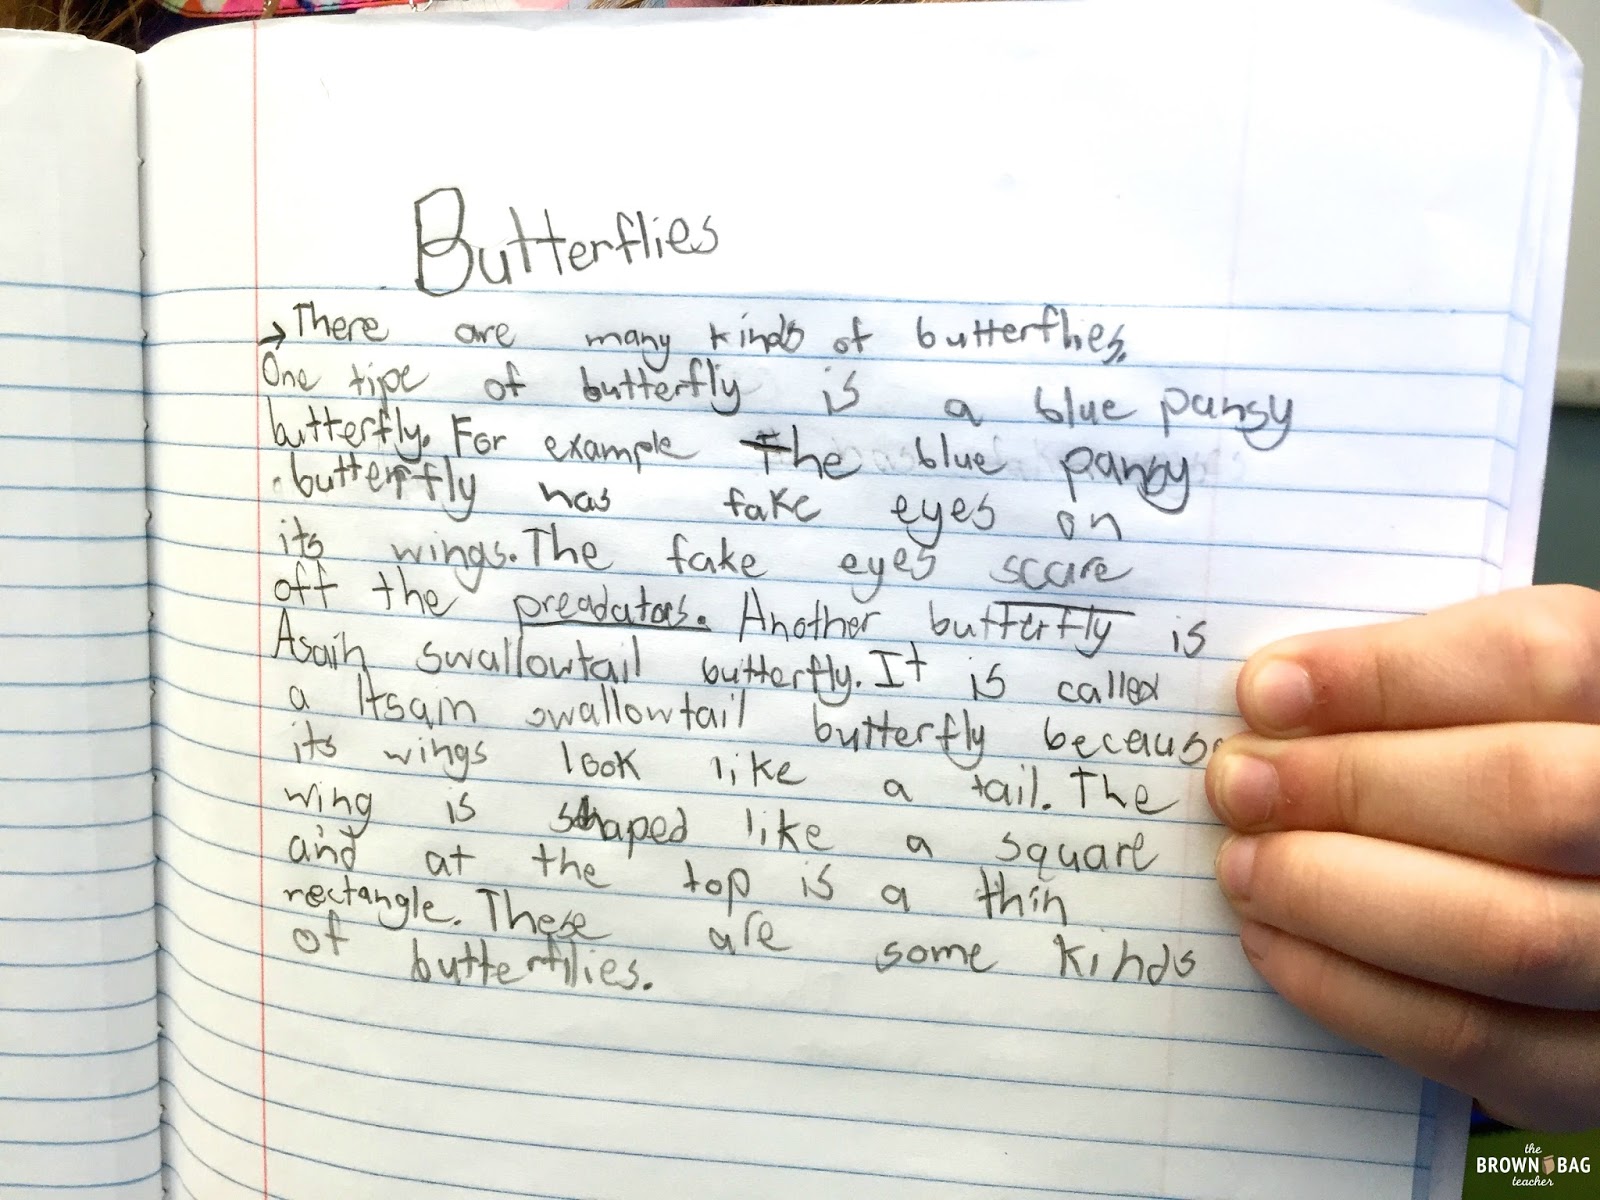 Butterflies
→There are many kinds of butterflies.
One tipe of butterfly is a blue pansy
butterfly. For example The blue pansy
butterfly has fake eyes on
its wings. The fake eyes scare
off the preadators. Another butterfly is
Asain swallowtail butterfly. It is called
a Itsain swallowtail butterfly because
its wings look like a tail. The
wing is shaped like a square
and at the top is a thin
rectangle. These are some kinds
of butterflies.
the
BROWN BAG
teacher